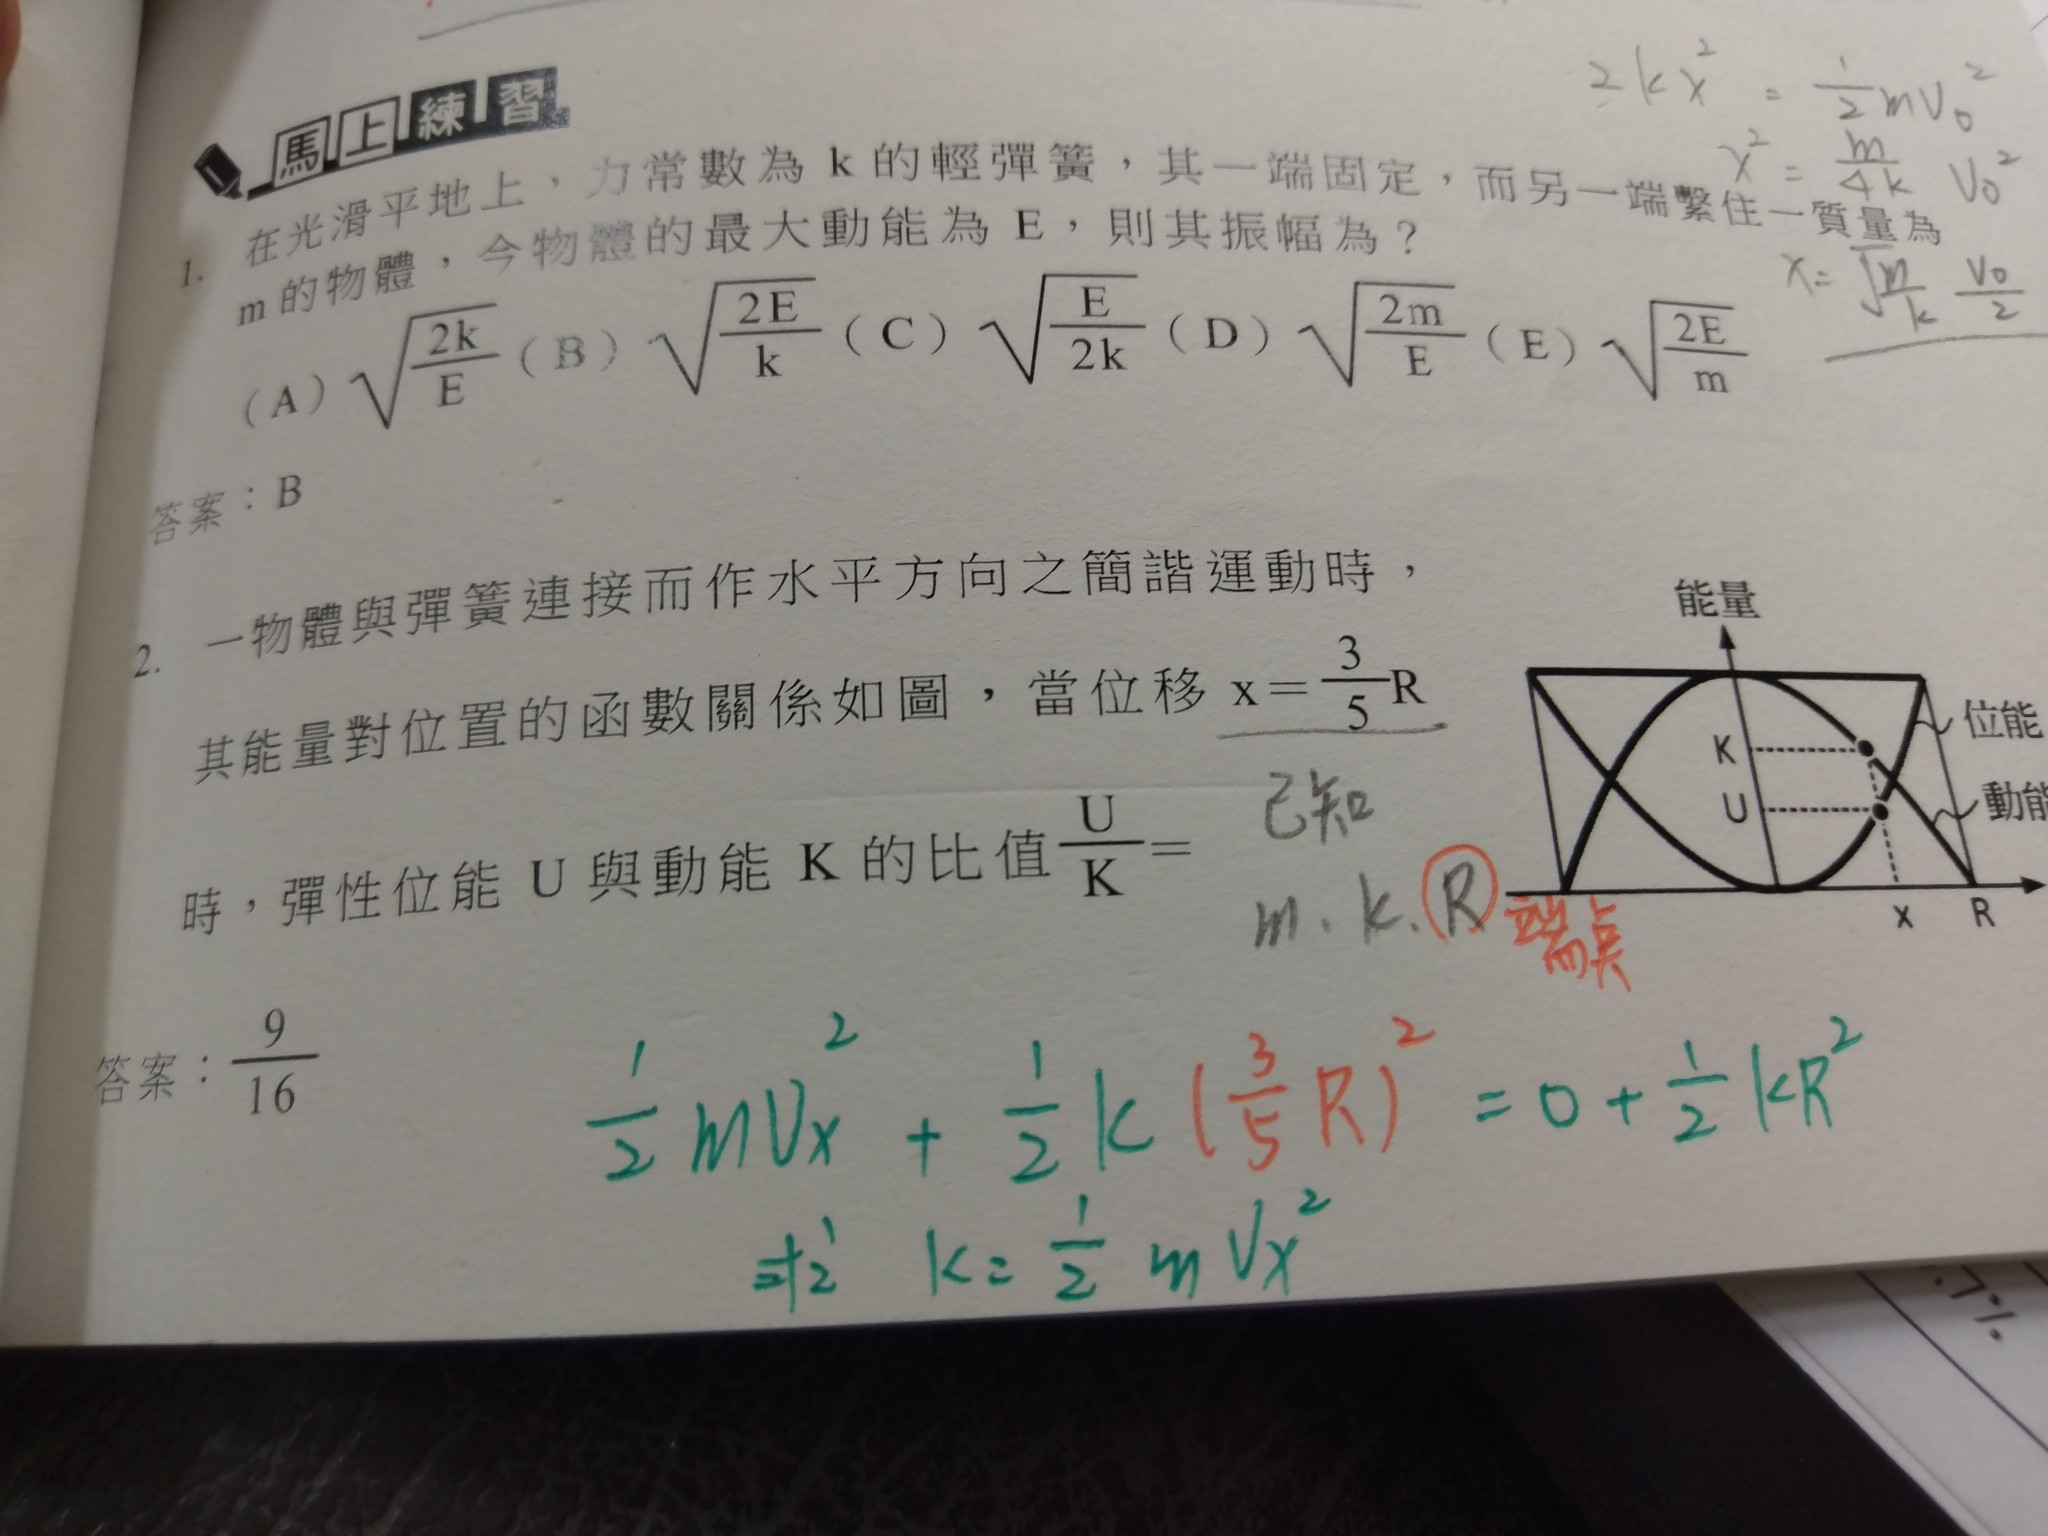 馬上練習
2kx² = ½mV₀²
x² = m/4k V₀²
x = √(m/k) V₀/2
1. 在光滑平地上，力常數為 k 的輕彈簧，其一端固定，而另一端繫住一質量為
m 的物體，今物體的最大動能為 E，則其振幅為？
（A）√(2k/E)（B）√(2E/k)（C）√(E/2k)（D）√(2m/E)（E）√(2E/m)
答案：B
2. 一物體與彈簧連接而作水平方向之簡諧運動時，
其能量對位置的函數關係如圖，當位移 x＝3/5R
時，彈性位能 U 與動能 K 的比值 U/K＝
已知
m．k．R 端點
能量
位能
K
U
x R
答案：9/16
½mVx² + ½k(3/5R)² = 0 + ½kR²
求 k = ½mVx²